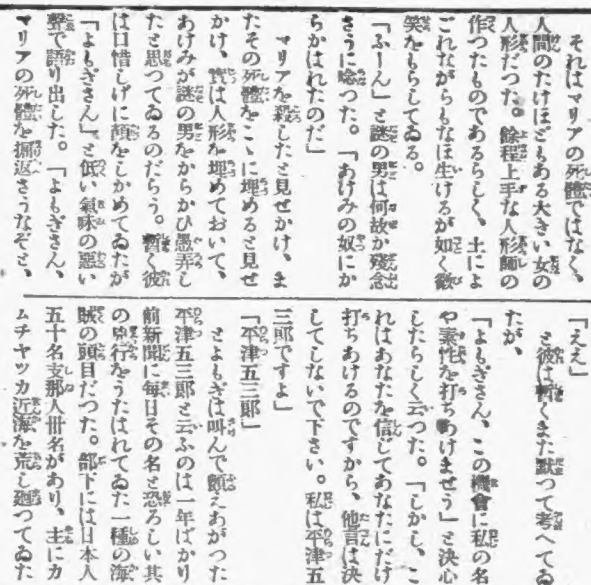 それはマリアの死體ではなく、
人間のたけほどもある大きい女の
人形だつた。餘程上手な人形師の
作つたものであるらしく、土によ
ごれながらもなほ生けるが如く微
笑をもらしてゐる。
「ふーん」と謎の男は何故か殘念
さうに唸つた。「あけみの奴にか
らかはれたのだ」
マリアを殺したと見せかけ、ま
たその死體をこゝに埋めると見せ
かけ、實は人形を埋めておいて、
あけみが謎の男をからかひ愚弄し
たと思つてゐるのだらう。暫く彼
は口惜しげに顔をしかめてゐたが
「よもぎさん」、と低い氣味の惡い
聲で語り出した。「よもぎさん、
マリアの死體を掘返さうなぞと、
「ええ」
と彼は暫くまた默つて考へてゐ
たが、
「よもぎさん、この機會に私の名
や素性を打ちあけませう」と決心
したらしく云つた。「しかし、こ
れはあなたを信じてあなたにだけ
打ちあけるのですから、他言は決
してしないで下さい。私は平津五
三郎ですよ」
「平津五三郎」
とよもぎは叫んで顫えあがつた
平津五三郎と云ふのは一年ばかり
前新聞に毎日その名と恐ろしい其
の行をうたはれてゐた一種の海
賊の頭目だつた。部下には日本人
五十名支那人卅名があり、主にカ
ムチヤツカ近海を荒し廻つてゐた